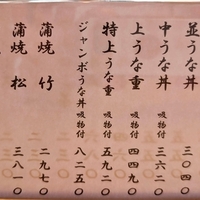 並うな丼 三〇四〇
中うな丼 吸物付 三六二〇
上うな重 吸物付 四四九〇
特上うな重 吸物付 五九二〇
ジャンボうな丼 吸物付 八二五〇
蒲焼 竹 二九七〇
蒲焼 松 三八一〇